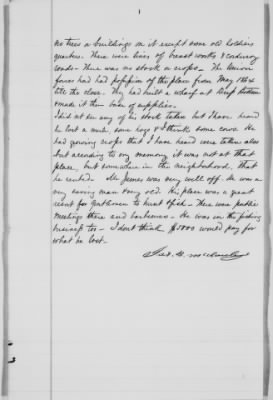 no trees or buildings on it except some old soldiers
quarters. There were lines of breast works & corduroy
roads. There was no stock or crops. The Union
forces had had possession of the place from May 1864
till the close. They had built a wharf at Deep Bottom
& made it their base of supplies.
I did not see any of his stock taken but I have heard
he lost a mule some hogs & I think some cows. He
had growing crops that I have heard were taken also
but according to my memory it was not at that
place, but somewhere in the neighborhood, that
he rented. Mr James was very well off. He was a
very saving man & very old. His place was a great
resort for gentlemen to hunt & fish. There were public
meetings there and barbecues. He was in the fishing
business too. I dont think $5000 would pay for
what he lost.
Geo. W.